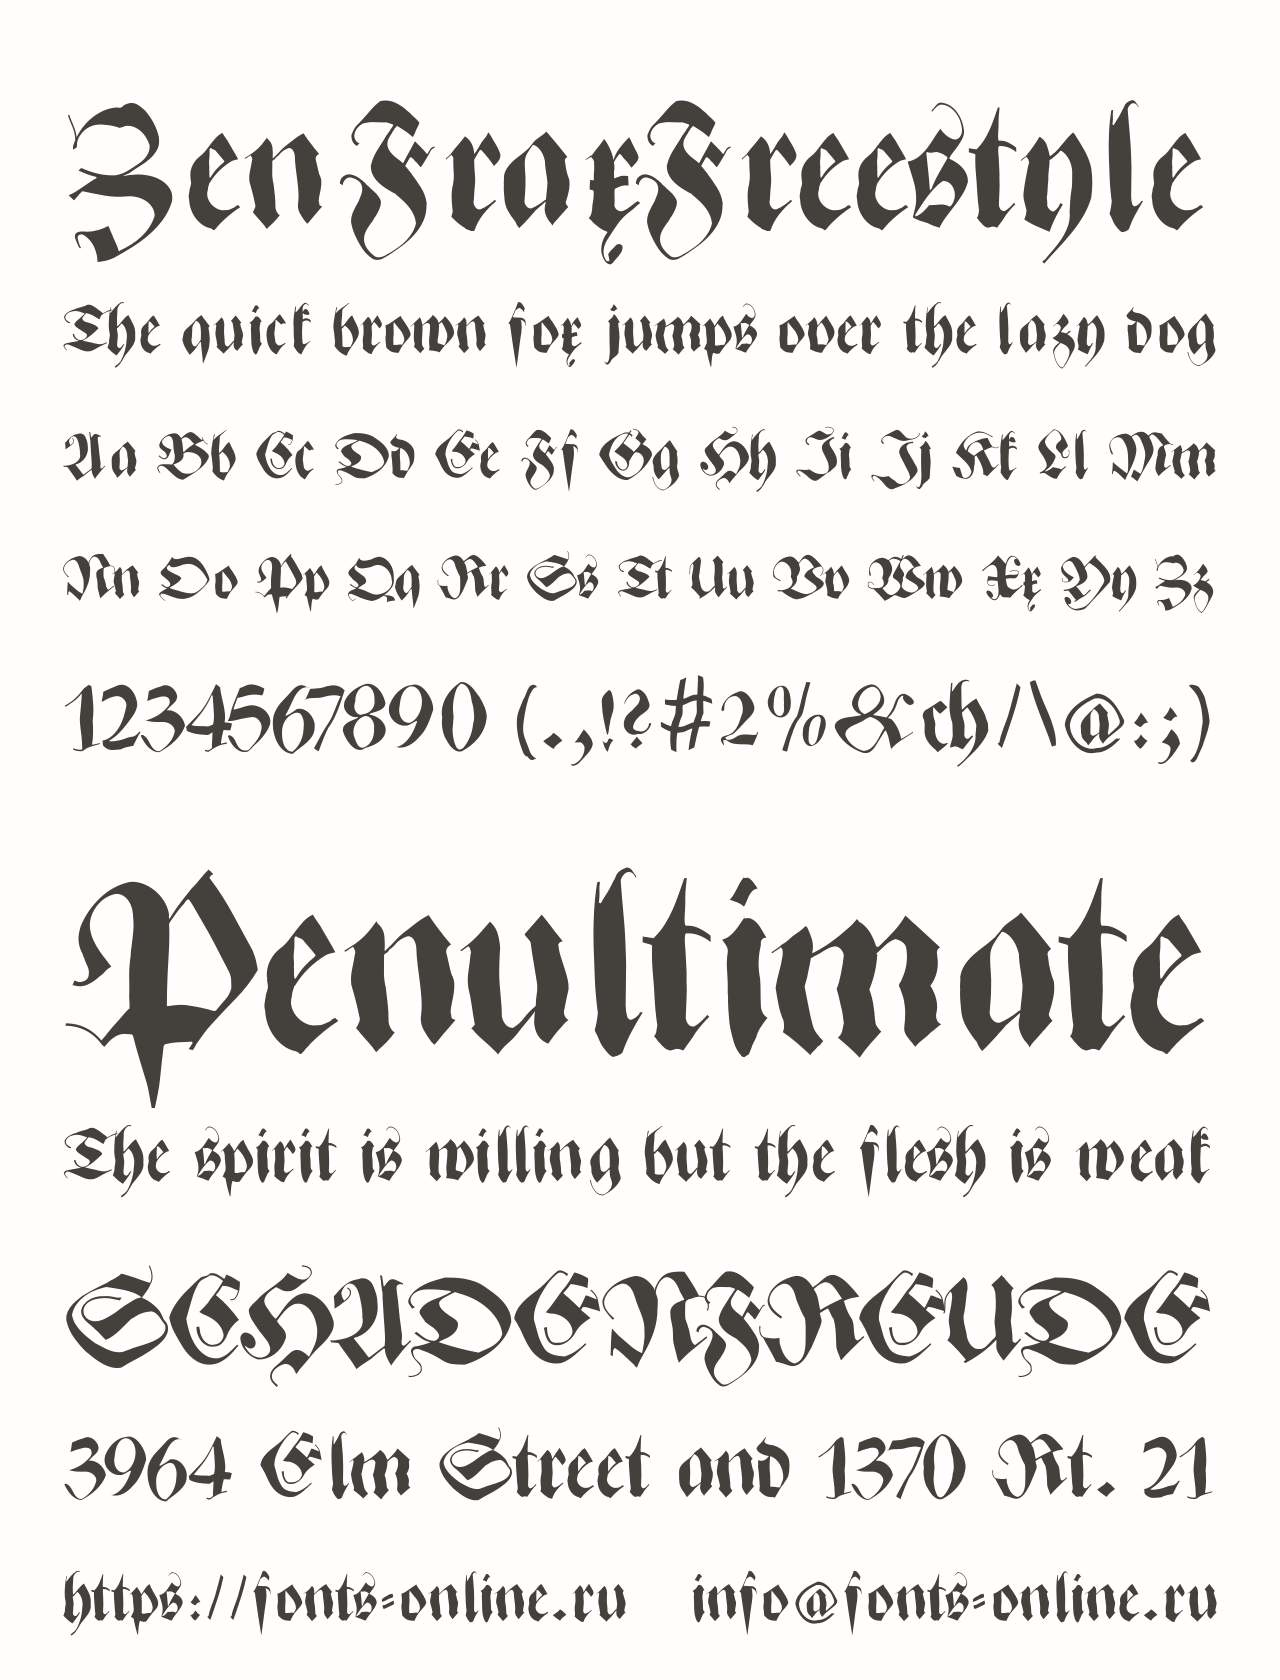 ZenFraxFreestyle
The quick brown fox jumps over the lazy dog
Aa Bb Cc Dd Ee Ff Gg Hh Ii Jj Kk Ll Mm
Nn Oo Pp Qq Rr Ss Tt Uu Vv Ww Xx Yy Zz
1234567890 (.,!?#2%&ch/\@:;)
Penultimate
The spirit is willing but the flesh is weak
SCHADENFREUDE
3964 Elm Street and 1370 Rt. 21
https://fonts-online.ru info@fonts-online.ru